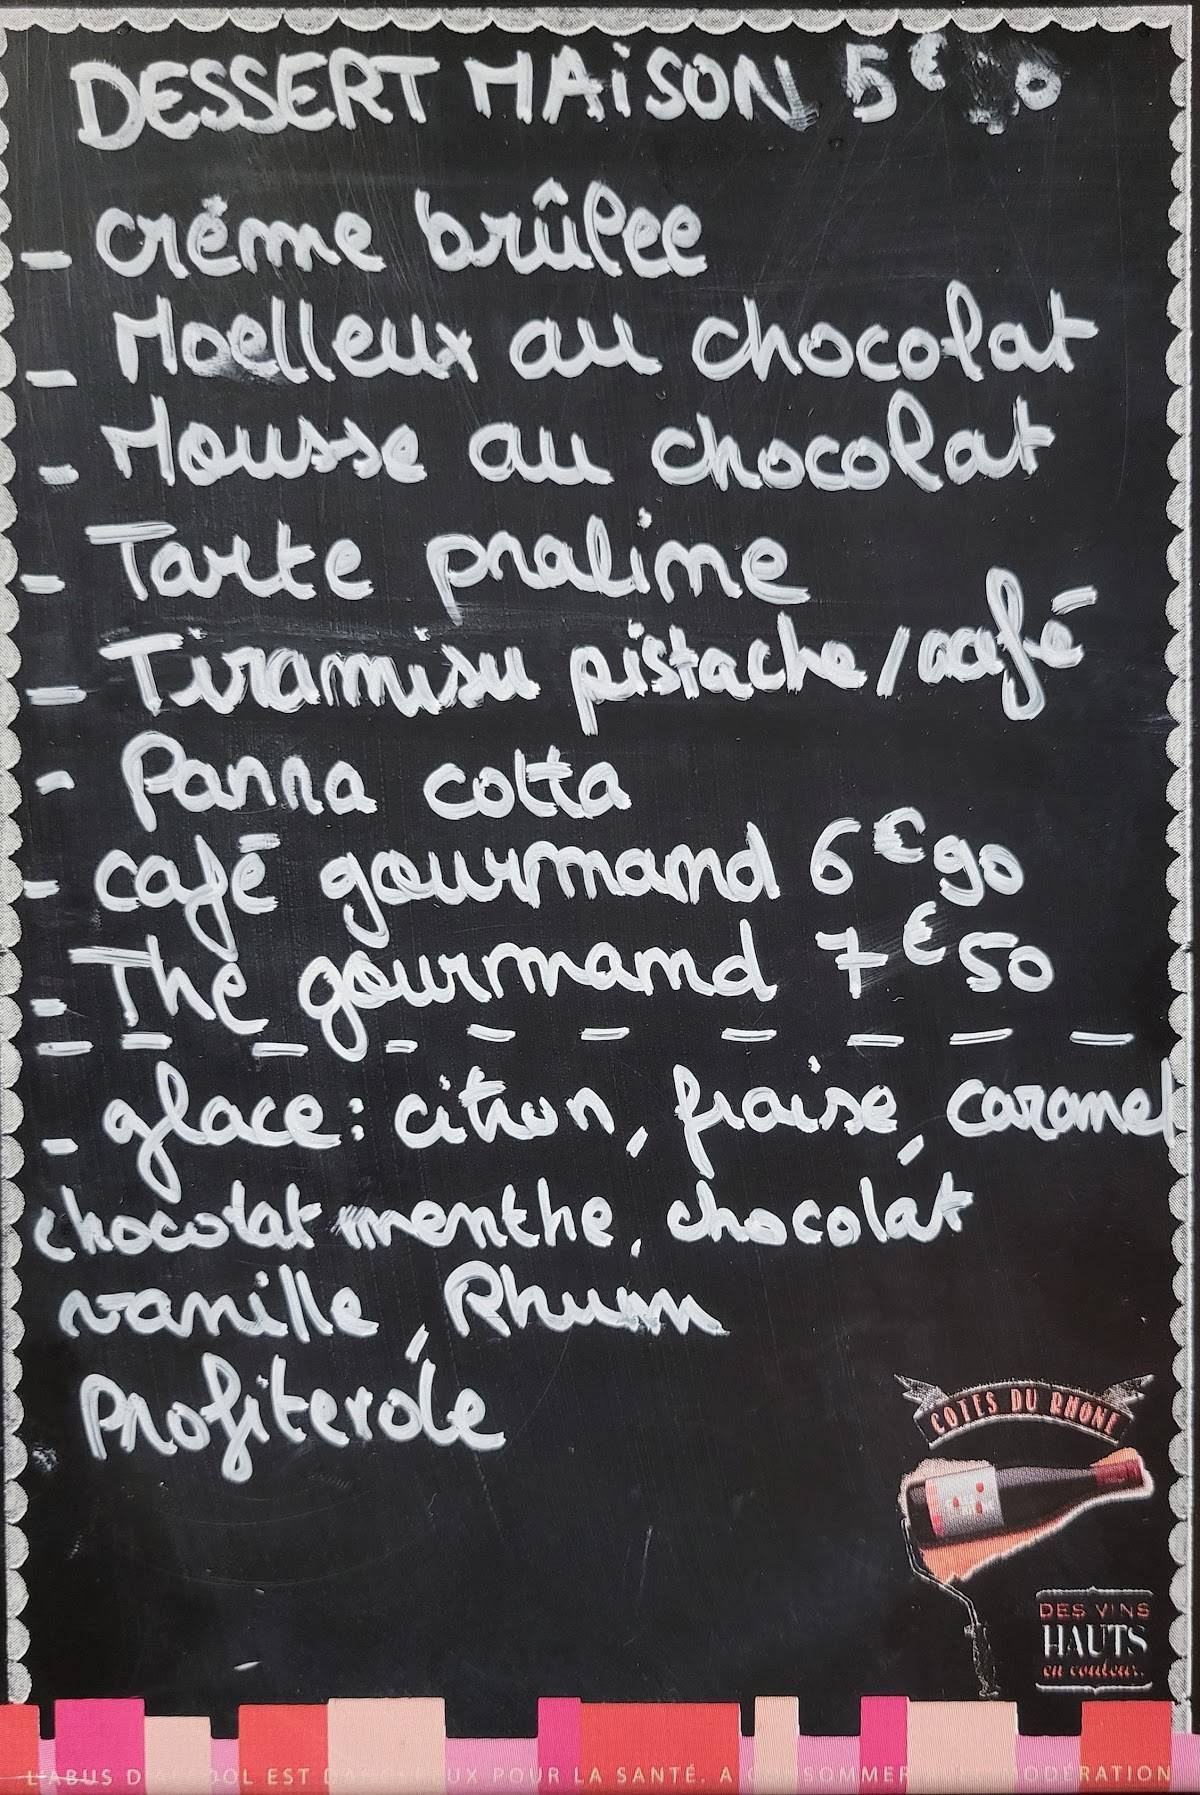 DESSERT MAISON 5€ 0
- Crème brûlée
- Moelleux au chocolat
- Mousse au chocolat
- Tarte praline
- Tiramisu pistache/café
- Panna cotta
- café gourmand 6€90
- Thé gourmand 7€50
- glace: citron, fraise, caramel
chocolat menthe, chocolat
vanille, Rhum
Profiterole
COTES DU RHONE
DES VINS
HAUTS
en couleur.
L'ABUS D'ALCOOL EST DANGEREUX POUR LA SANTÉ. A CONSOMMER AVEC MODÉRATION